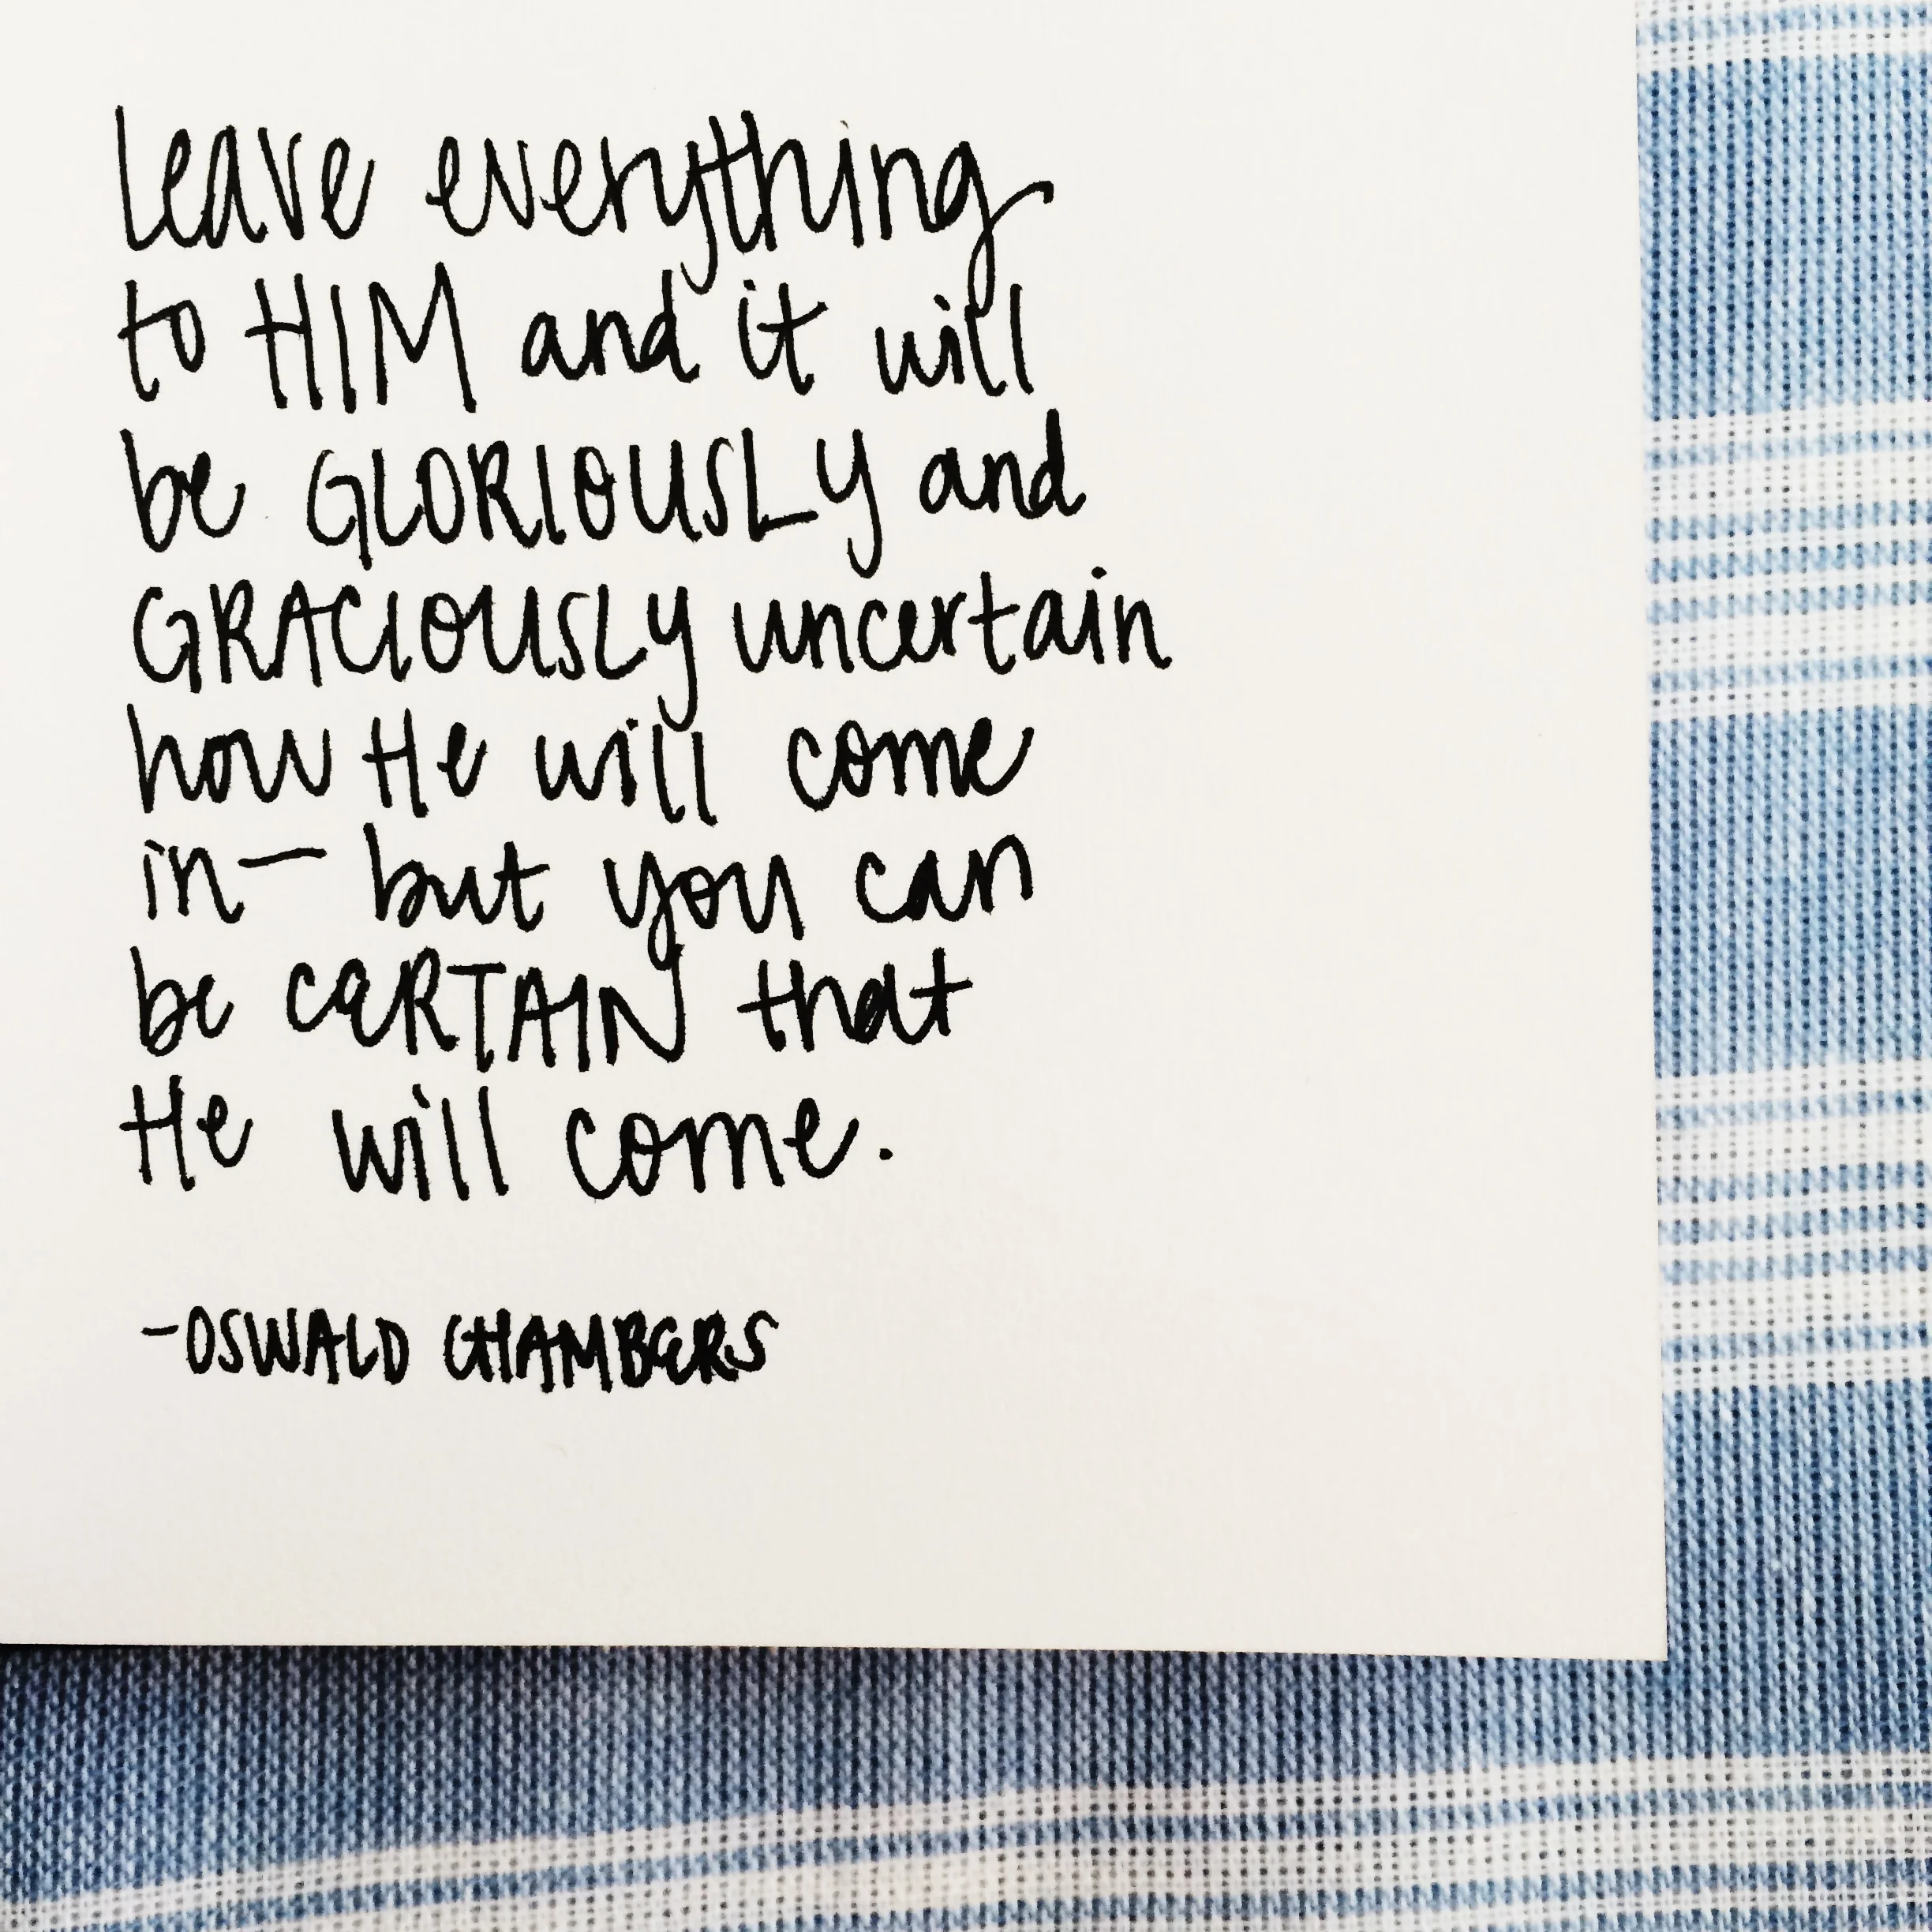 leave everything
to HIM and it will
be GLORIOUSLY and
GRACIOUSLY uncertain
how He will come
in— but you can
be CERTAIN that
He will come.
-OSWALD CHAMBERS